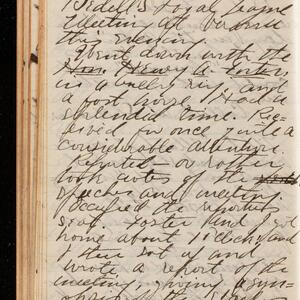 meeting at
this evening.
Went down with the
Hon. Henry A. Foster
in a and
a fast horse. Had a
splendid time. Re-
ceived for once quite a
considerable attention.
Reported — or rather
took notes of the
speeches and meeting.
Occupied the reporters
seat. Foster and I got
home about 11 o'clock, and
I then sat up and
wrote a report of the
meeting, giving a syn-
opsis of the